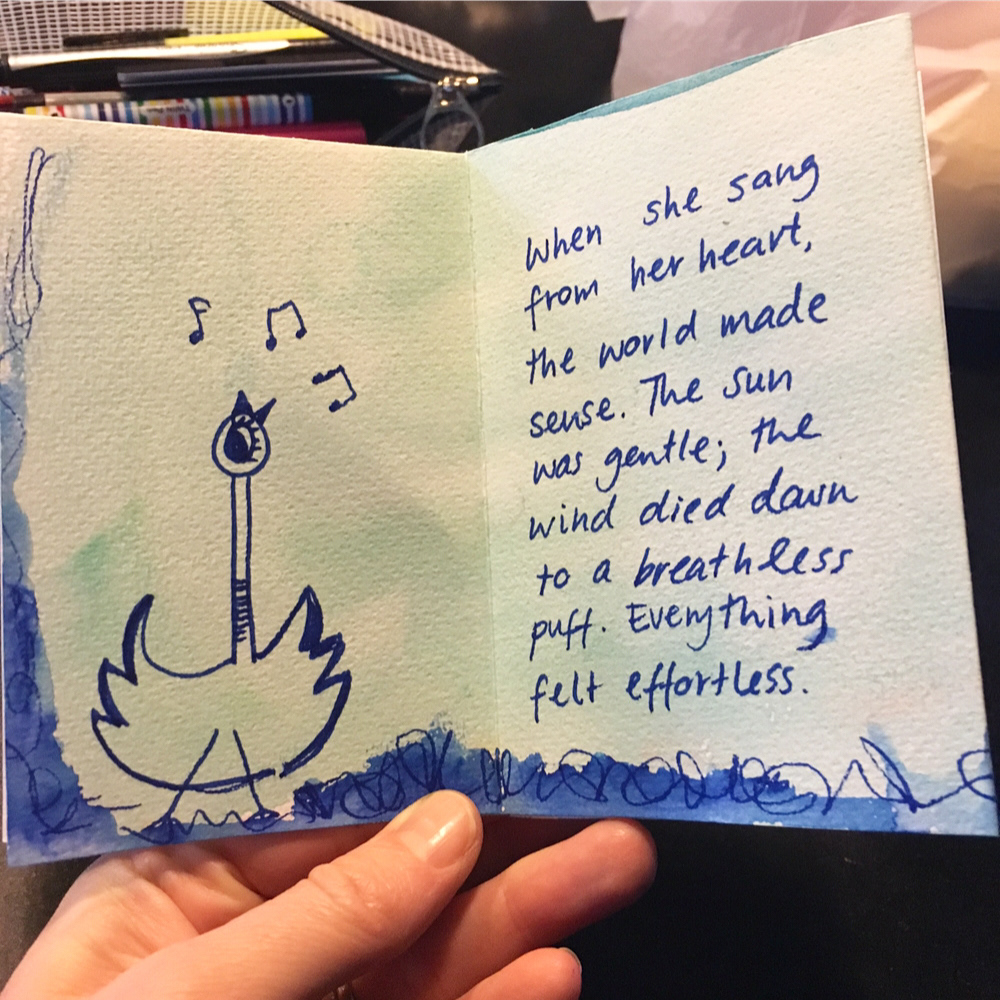 When she sang
from her heart,
the world made
sense. The sun
was gentle; the
wind died down
to a breathless
puff. Everything
felt effortless.